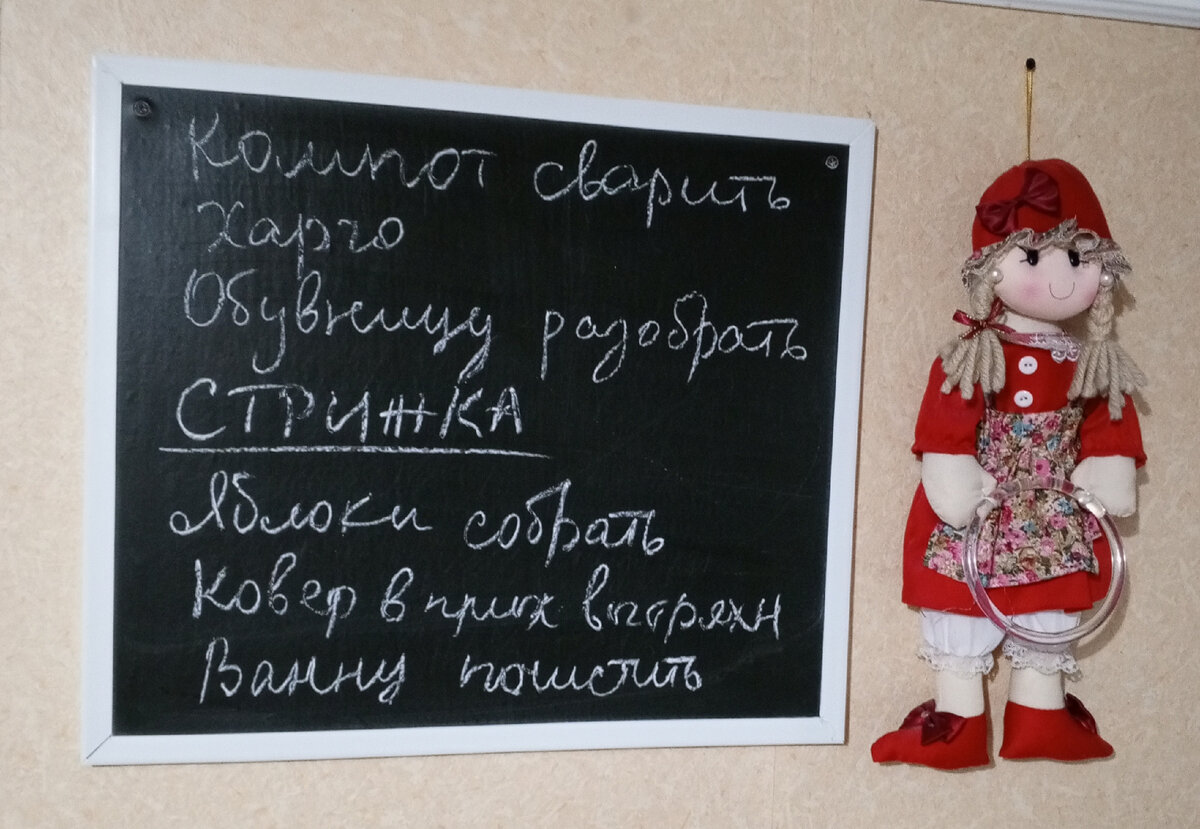 Компот сварить
Харчо
Обувницу разобрать
СТРИЖКА
Яблоки собрать
Ковер в прих вытряхн
Ванну почистить